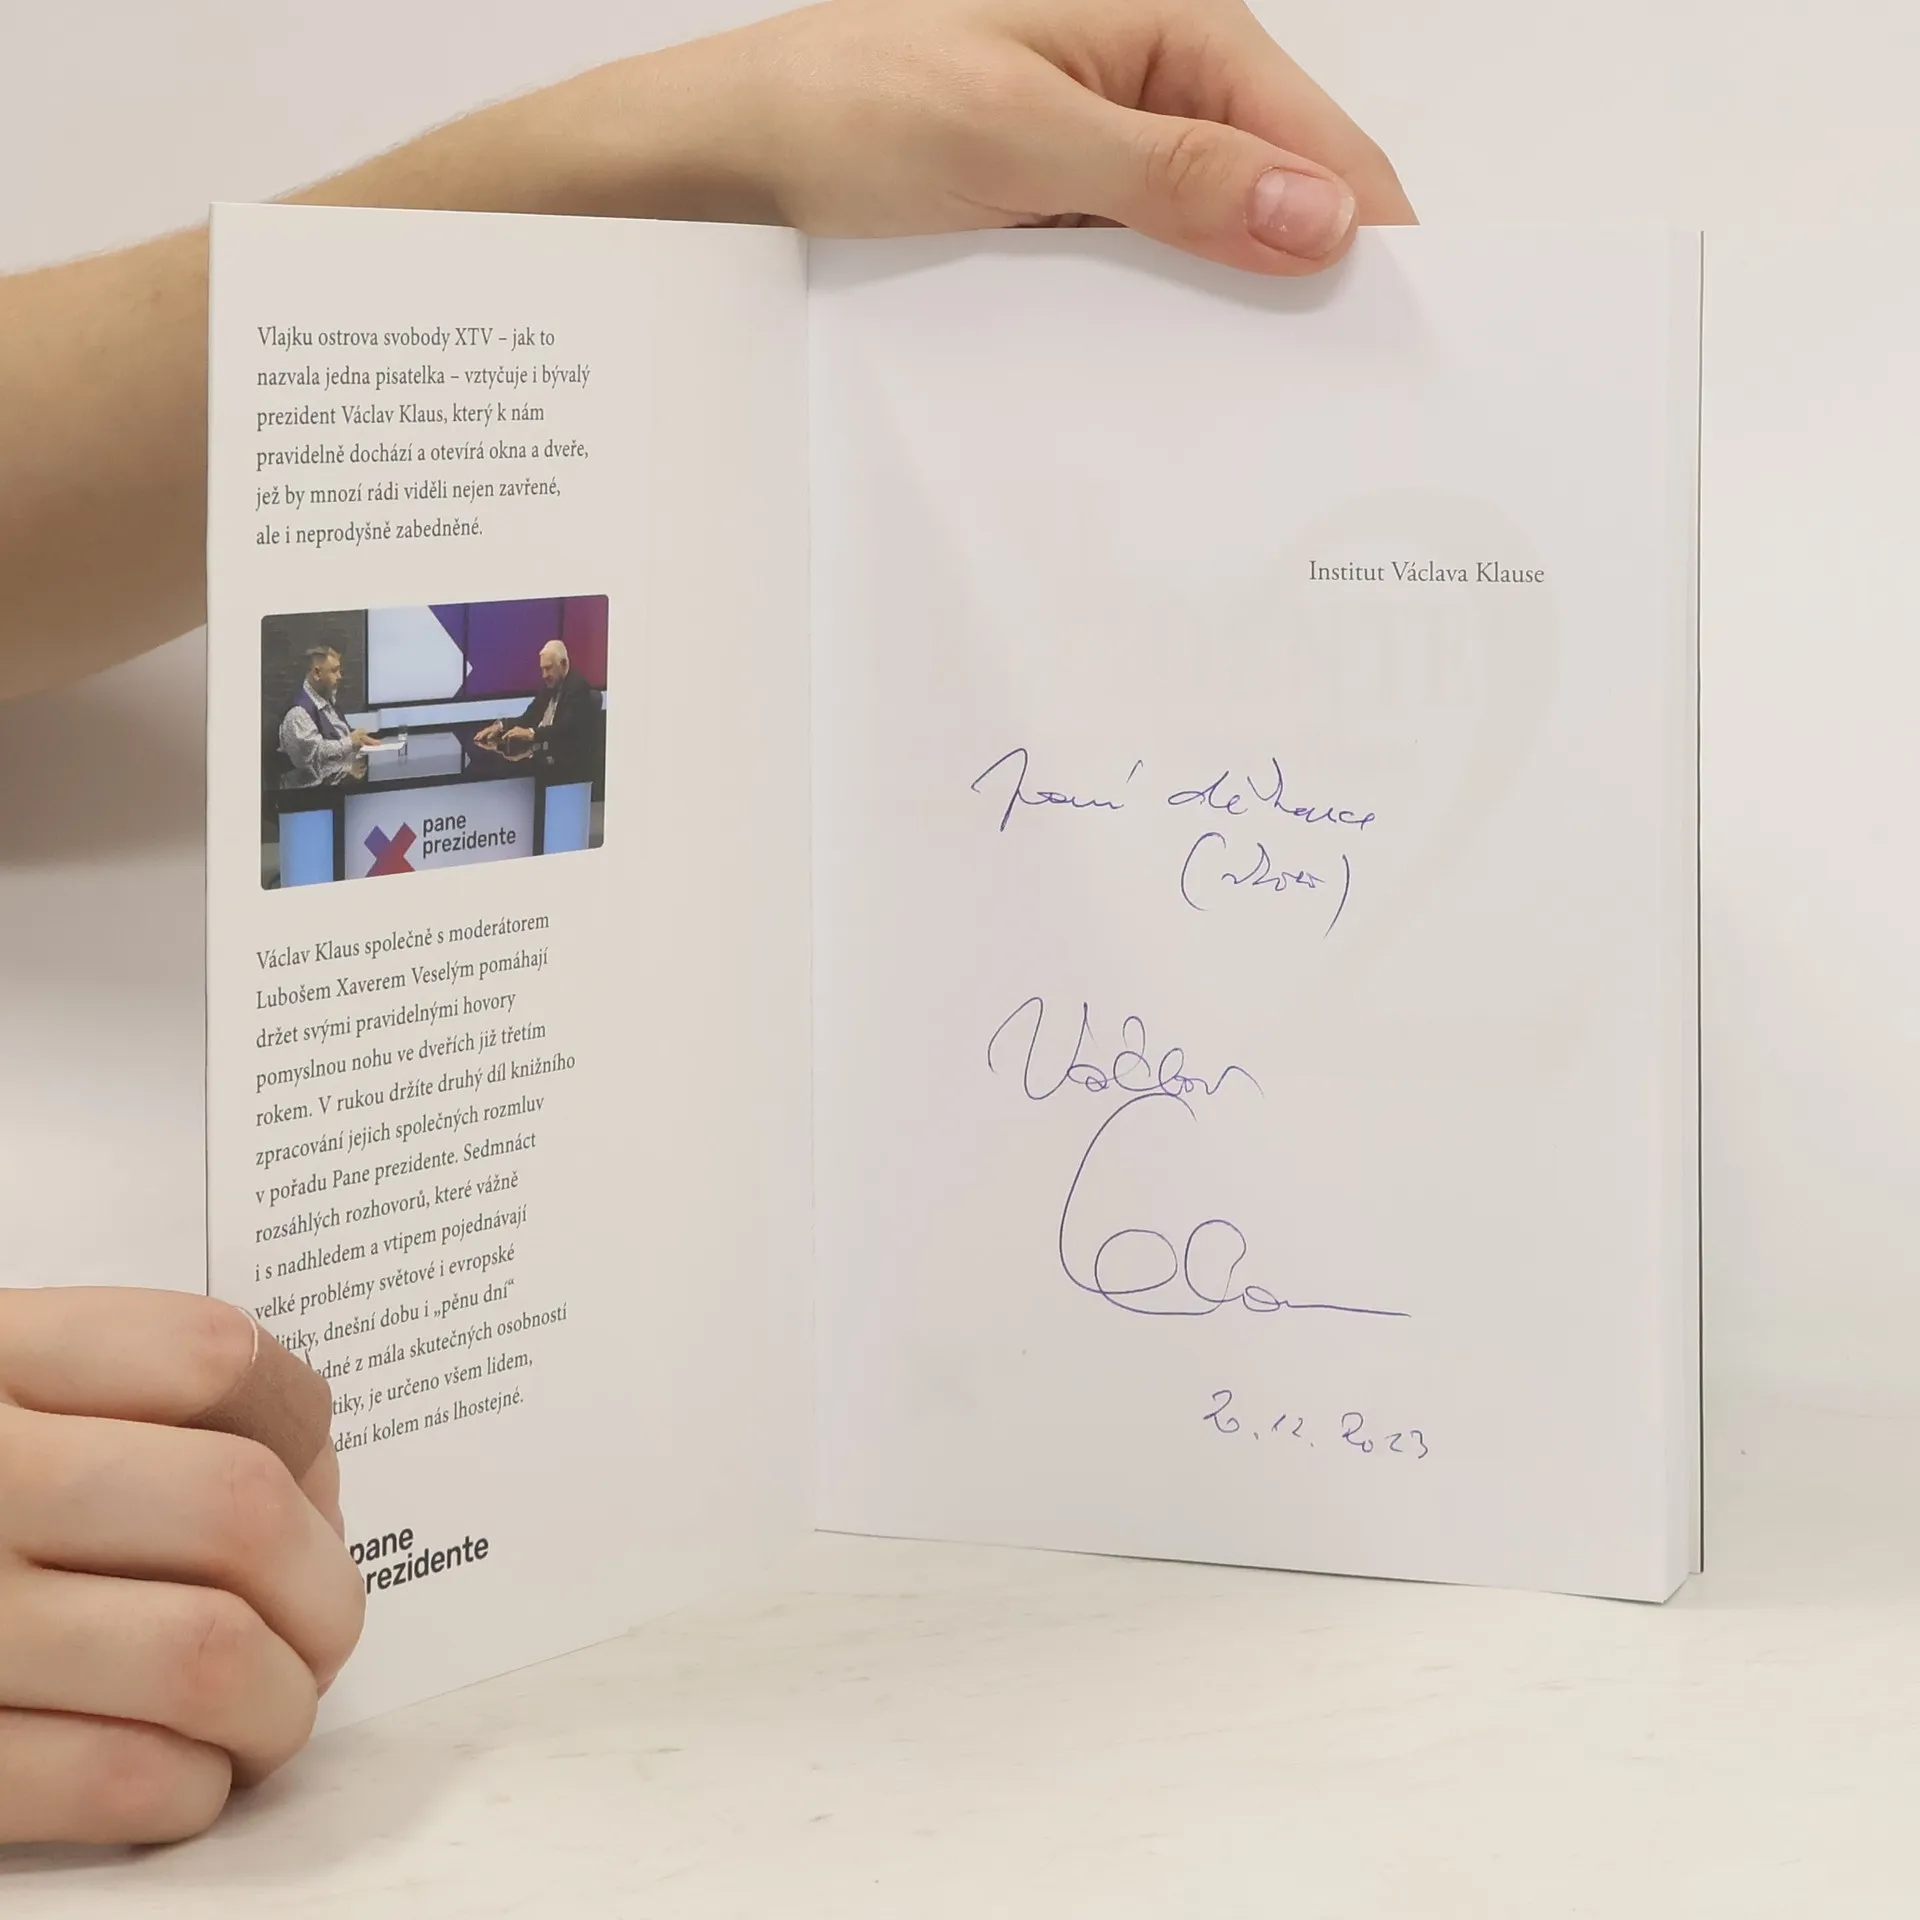 Vlajku ostrova svobody XTV – jak to
nazvala jedna pisatelka – vztyčuje i bývalý
prezident Václav Klaus, který k nám
pravidelně dochází a otevírá okna a dveře,
jež by mnozí rádi viděli nejen zavřené,
ale i neprodyšně zabedněné.
pane
prezidente
Václav Klaus společně s moderátorem
Lubošem Xaverem Veselým pomáhají
držet svými pravidelnými hovory
pomyslnou nohu ve dveřích již třetím
rokem. V rukou držíte druhý díl knižního
zpracování jejich společných rozmluv
v pořadu Pane prezidente. Sedmnáct
rozsáhlých rozhovorů, které vážně
i s nadhledem a vtipem pojednávají
velké problémy světové i evropské
litiky, dnešní dobu i „pěnu dní“
edné z mála skutečných osobností
tiky, je určeno všem lidem,
dění kolem nás lhostejné.
pane
rezidente
Institut Václava Klause
paní
Václav
Klaus
2. 12. 2023